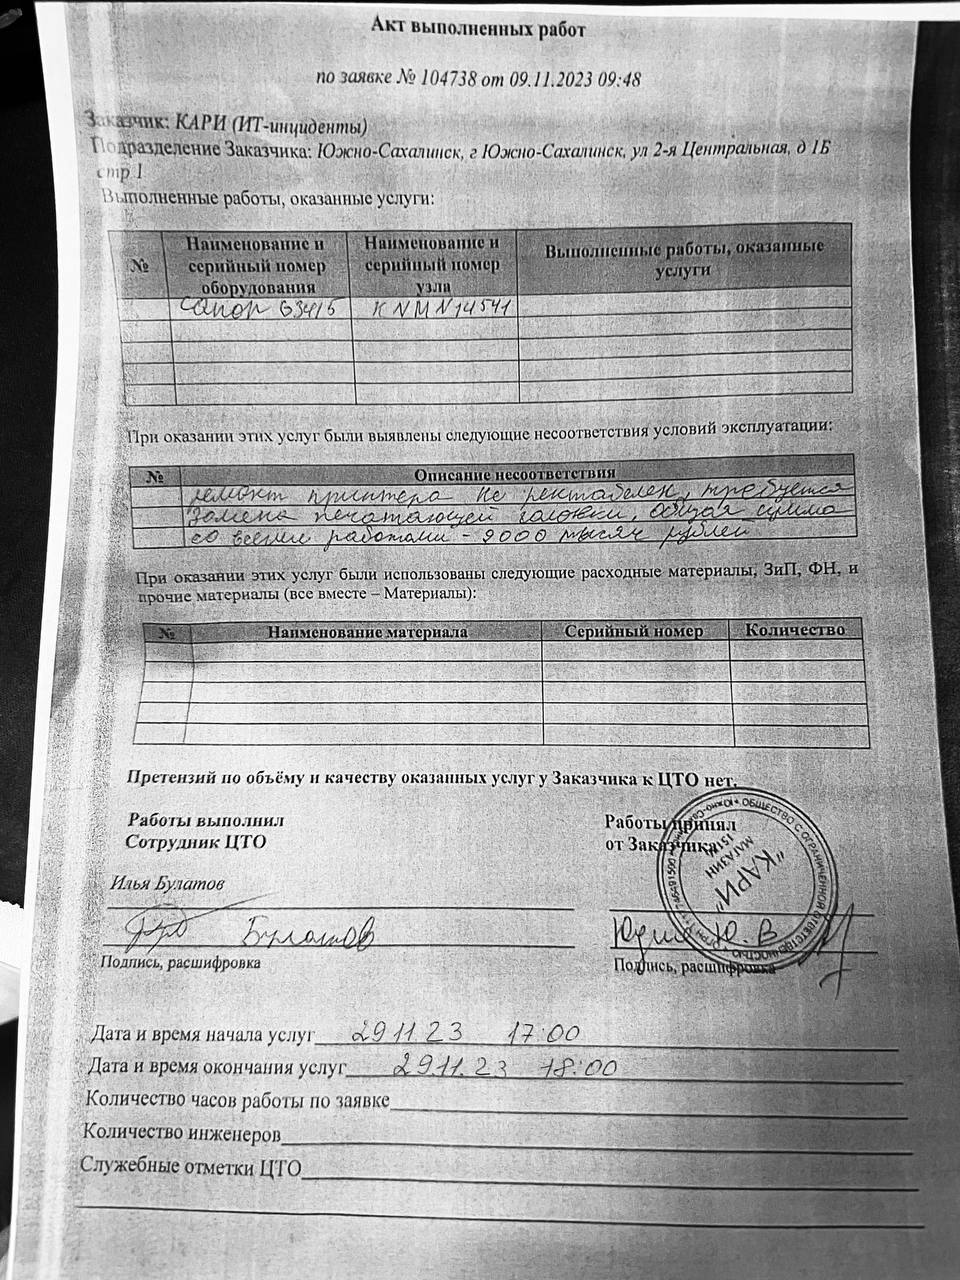 Акт выполненных работ
по заявке № 104738 от 09.11.2023 09:48
Заказчик: КАРИ (ИТ-инциденты)
Подразделение Заказчика: Южно-Сахалинск, г Южно-Сахалинск, ул 2-я Центральная, д 1Б
стр 1
Выполненные работы, оказанные услуги:
№ Наименование и серийный номер оборудования Наименование и серийный номер узла Выполненные работы, оказанные услуги
Canon G3415 KNMN14541
При оказании этих услуг были выявлены следующие несоответствия условий эксплуатации:
№ Описание несоответствия
ремонт принтера не рентабелен, требуется
замена печатающей головки, общая сумма
со всеми работами - 9000 тысяч рублей
При оказании этих услуг были использованы следующие расходные материалы, ЗиП, ФН, и
прочие материалы (все вместе – Материалы):
№ Наименование материала Серийный номер Количество
Претензий по объёму и качеству оказанных услуг у Заказчика к ЦТО нет.
Работы выполнил Работы принял
Сотрудник ЦТО от Заказчика
ОБЩЕСТВО С ОГРАНИЧЕННОЙ ОТВЕТСТВЕННОСТЬЮ
МАГАЗИН
"КАРИ"
Илья Булатов
Булатов Ю. В
Подпись, расшифровка Подпись, расшифровка
Дата и время начала услуг 29 11 23 17:00
Дата и время окончания услуг 29.11.23 18:00
Количество часов работы по заявке
Количество инженеров
Служебные отметки ЦТО